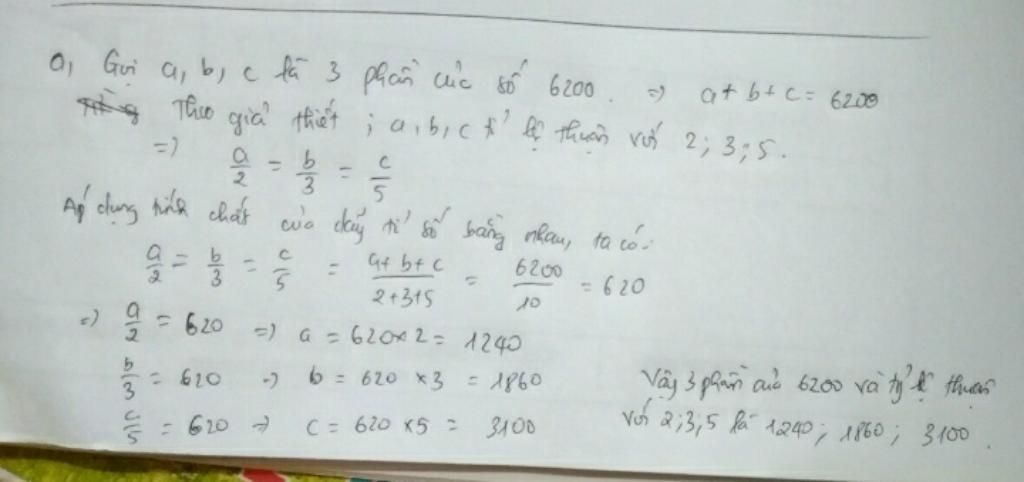 a, Gọi a, b, c là 3 phần của số 6200. => a + b + c = 6200
Theo giả thiết; a, b, c tỉ lệ thuận với 2; 3; 5.
=> a/2 = b/3 = c/5
Áp dụng tính chất của dãy tỉ số bằng nhau, ta có:
a/2 = b/3 = c/5 = (a+b+c)/(2+3+5) = 6200/10 = 620
=> a/2 = 620 => a = 620 × 2 = 1240
b/3 = 620 => b = 620 × 3 = 1860
c/5 = 620 => c = 620 × 5 = 3100
Vậy 3 phần của 6200 và tỷ lệ thuận
với 2; 3; 5 là 1240; 1860; 3100.